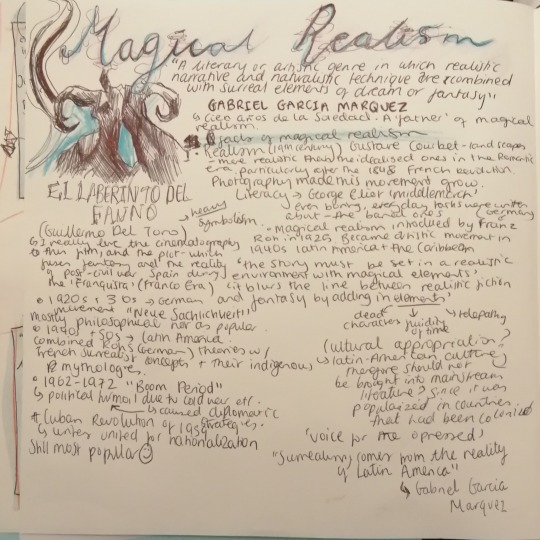 Magical Realism
"A literary or artistic genre in which realistic
narrative and naturalistic technique are combined
with surreal elements of dream or fantasy"
GABRIEL GARCIA MARQUEZ
↳ Cien años de la Soledad. A 'father' of magical
realism.
facts of magical realism
1. Realism (19th century) Gustave Courbet - landscapes
- more realistic than the idealised ones in the Romantic
era, particularly after the 1848 French revolution.
Photography made this movement grow.
Literacy → George Eliot (middlemarch)
even boring, everyday topics were written
about - the banal ones
EL LABERINTO DEL
FAUNO
(Guillermo Del Toro)
→ heavy
symbolism.
↳ I really like the cinematography
to this film, and the plot - which
fuses fantasy and the reality
of post-civil war Spain during
the 'Franquista' (Franco Era)
• magical realism introduced by Franz
Roh in 1925 (Germany)
Became artistic movement in
1940s Latin America + the Caribbean
'the story must be set in a realistic
environment with magical elements'
↳ it blurs the line between realistic fiction
and fantasy by adding in elements'
dead characters
fluidity of time
telepathy
• 1920s + 30s → German
movement "Neue Sachlichkeit"
mostly philosophical not as popular
• 1940s + 50s → Latin America
combined Roh's (German) theories w/
French surrealist concepts + their indigenous
mythologies.
• 1962-1972 "Boom Period"
↳ political turmoil due to cold war
↳ caused diplomatic
strategies.
# Cuban Revolution of 1959
↳ writers united for nationalization
Still most popular
Cultural appropriation?
↳ (latin-American culture)
therefore should not
be brought into mainstream
literature? since it was
popularized in countries
that had been colonized
'voice for the opressed'
"Surrealism comes from the reality
of Latin America"
↳ Gabriel Garcia
Marquez